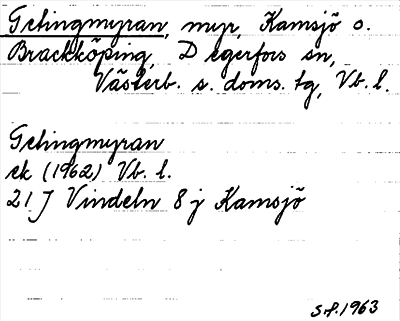 Getingmyran, myr, Kamsjö o.
Brackköping, Degerfors sn,
Västerb. s. doms. tg, Vb. l.
Getingmyran
ek (1962) Vb. l.
21 J Vindeln 8 j Kamsjö
S.P. 1963